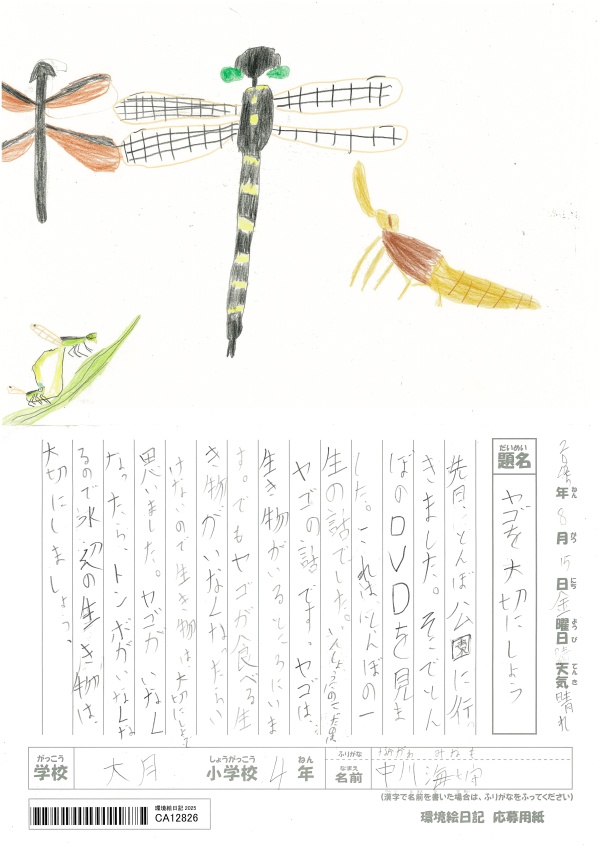 年 8月 15日 金曜日 天気 晴れ
ねん がつ にち ようび てんき
だいめい
題名
ヤゴを大切にしよう
先日、とんぼ公園に行っ
きました。そこでとん
ぼのDVDを見ま
した。これはとんぼの一
生の話でした。いんしょうのこたのは
ヤゴの話です。ヤゴは、
生き物がいるところにいま
す。でもヤゴが食べる生
き物がいなくなったらい
けないので生き物は大切にしよう
思いました。ヤゴがいなく
なったら、トンボがいなくな
るので水辺の生き物は、
大切にしましょう。
がっこう
学校
大月
しょうがっこう
小学校
4
ねん
年
ふりがな
なまえ
名前
中川 海
(漢字で名前を書いた場合は、ふりがなをふってください)
環境絵日記 2025
CA12826
環境絵日記 応募用紙